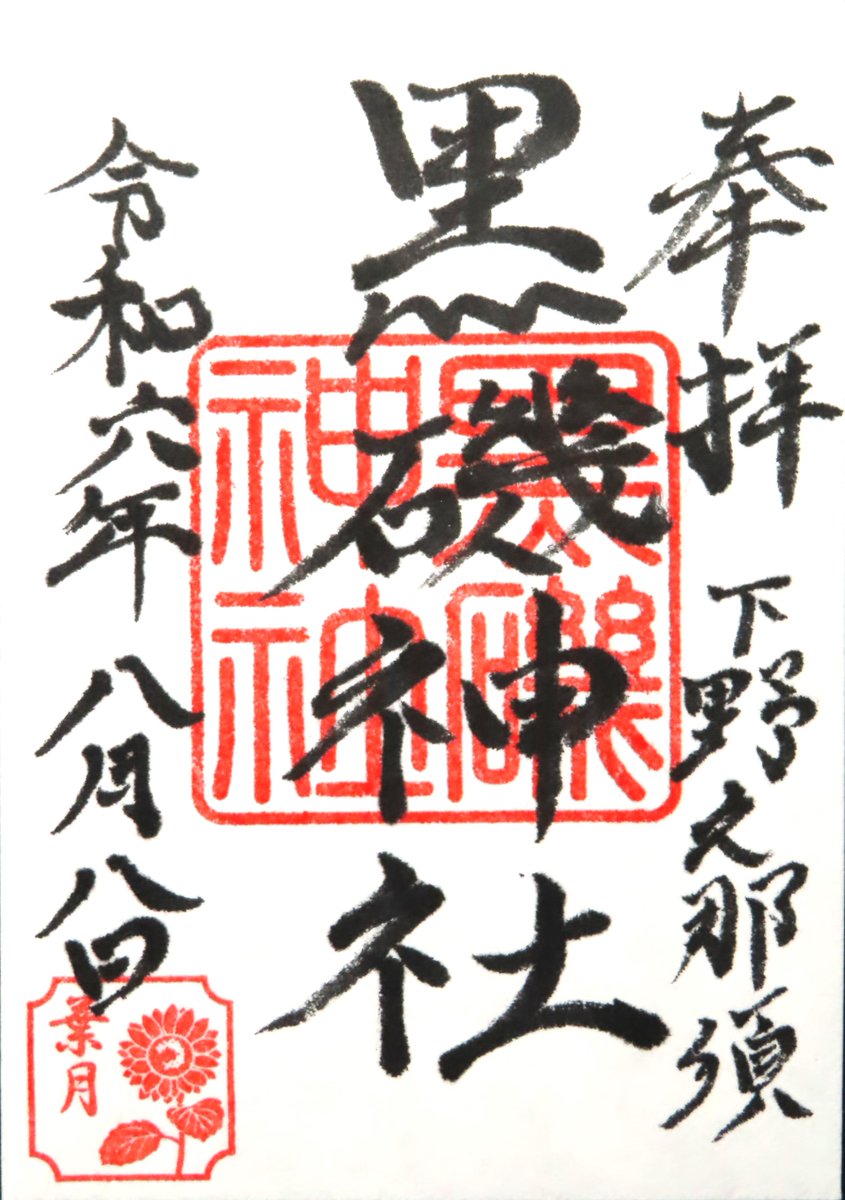 奉拝 下野之那須
黒磯神社
令和六年八月八日
黒磯
神社
葉月